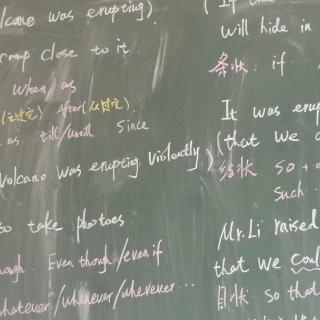 lcano was erupting).
camp close to it.
when as
(主过完) After(从过完)
as till/until since
Volcano was erupting violently.)
to take photoes
ough. Even though/even if
whatever/whenever/wherever...
will hide in
条状: if
It was eru
(that we c
结状 so + a
such
Mr. Li raised
that we cou
目状 so that